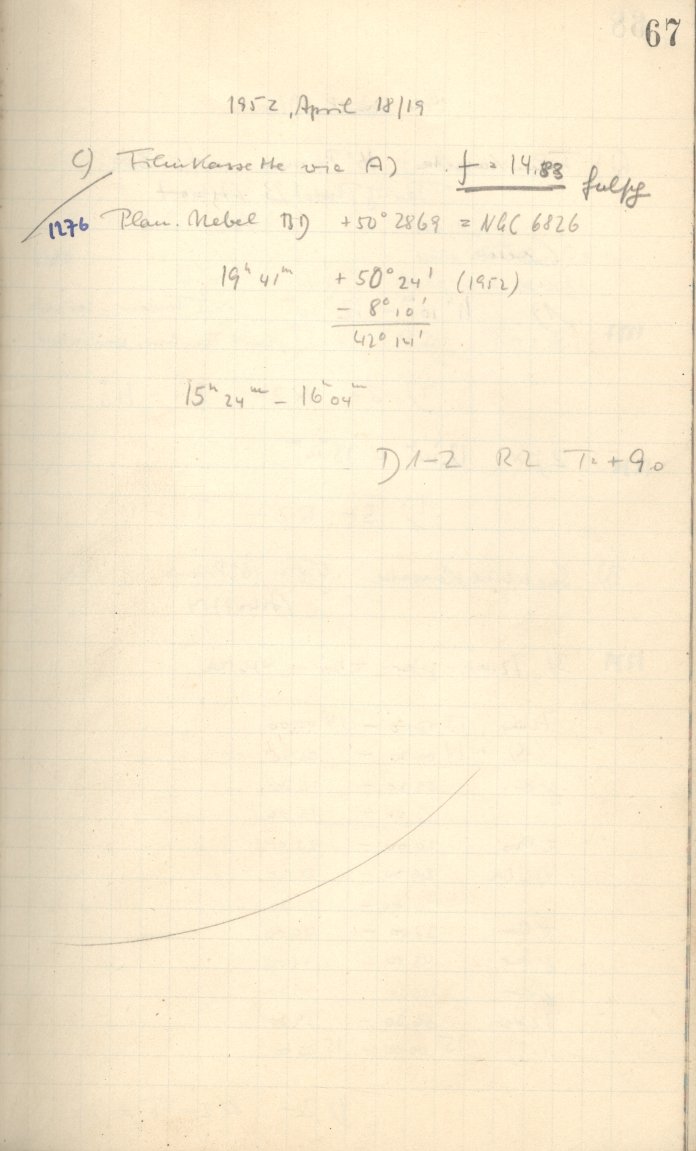 67
1952, April 18/19
C) Filmkassette wie A) f = 14.83 falsch
1276 Plan. Nebel BD +50° 2869 = NGC 6826
19ʰ 41ᵐ + 50° 24' (1952)
- 8° 10'
42° 14'
15ʰ 24ᵐ - 16ʰ 04ᵐ
D1-2 R2 T=+9.0